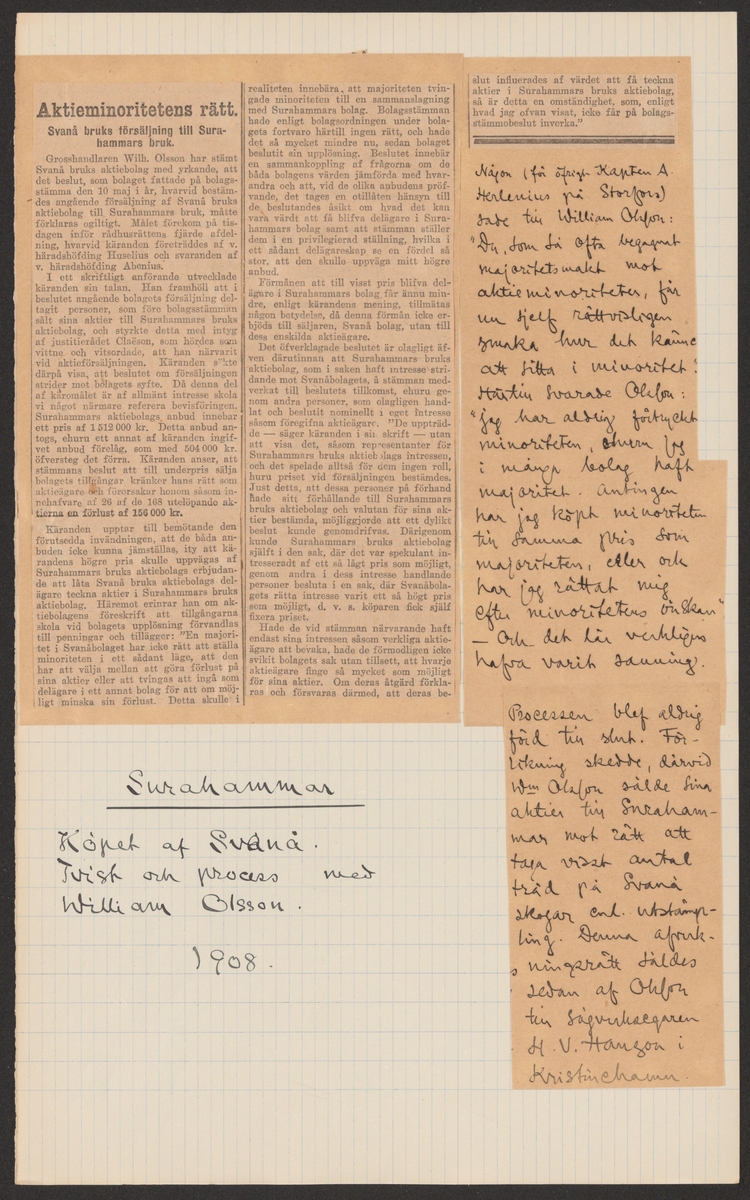 Aktieminoritetens rätt.
Svanå bruks försäljning till Sura-
hammars bruk.
Grosshandlaren Wilh. Olsson har stämt
Svanå bruks aktiebolag med yrkande, att
det beslut, som bolaget fattade på bolags-
stämma den 10 maj i år, hvarvid bestäm-
des angående försäljning af Svanå bruks
aktiebolag till Surahammars bruk, måtte
förklaras ogiltigt. Målet förekom på tis-
dagen inför rådhusrättens fjärde afdel-
ning, hvarvid käranden företräddes af v.
häradshöfding Huselius och svaranden af
v. häradshöfding Abenius.
I ett skriftligt anförande utvecklade
käranden sin talan. Han framhöll att i
beslutet angående bolagets försäljning del-
tagit personer, som före bolagsstämman
sålt sina aktier till Surahammars bruks
aktiebolag, och styrkte detta med intyg
af justitierådet Claëson, som hördes som
vittne och vitsordade, att han närvarit
vid aktieförsäljningen. Käranden sökte
därpå visa, att beslutet om försäljningen
strider mot bolagets syfte. Då denna del
af käromålet är af allmänt intresse skola
vi något närmare referera bevisföringen.
Surahammars aktiebolags anbud innebar
ett pris af 1 512 000 kr. Detta anbud an-
togs, ehuru ett annat af käranden ingif-
vet anbud förelåg, som med 504 000 kr.
öfversteg det förra. Käranden anser, att
stämmans beslut att till underpris sälja
bolagets tillgångar kränker hans rätt som
aktieägare och förorsakar honom såsom in-
nehafvare af 26 af de 168 utelöpande ak-
tierna en förlust af 156 000 kr.
Käranden upptar till bemötande den
förutsedda invändningen, att de båda an-
buden icke kunna jämställas, ity att kä-
randens högre pris skulle uppvägas af
Surahammars bruks aktiebolags erbjudan-
de att låta Svanå bruks aktiebolags del-
ägare teckna aktier i Surahammars bruks
aktiebolag. Häremot erinrar han om ak-
tiebolagens föreskrift att tillgångarna
skola vid bolagets upplösning förvandlas
till penningar och tillägger: "En majori-
tet i Svanåbolaget har icke rätt att ställa
minoriteten i ett sådant läge, att den
har att välja mellan att göra förlust på
sina aktier eller att tvingas att ingå som
delägare i ett annat bolag för att om möj-
ligt minska sin förlust. Detta skulle i
realiteten innebära, att majoriteten tvin-
gade minoriteten till en sammanslagning
med Surahammars bolag. Bolagsstämman
hade enligt bolagsordningen under bola-
gets fortvaro härtill ingen rätt, och hade
det så mycket mindre nu, sedan bolaget
beslutit sin upplösning. Beslutet innebär
en sammankoppling af frågorna om de
båda bolagens värden jämförda med hvar-
andra och att, vid de olika anbudens pröf-
vande, det tages en otillåten hänsyn till
de beslutandes åsikt om hvad det kan
vara värdt att få blifva delägare i Sura-
hammars bolag samt att stämman ställer
dem i en privilegierad ställning, hvilka i
ett sådant delägareskap se en fördel så
stor, att den skulle uppväga mitt högre
anbud.
Förmånen att till visst pris blifva del-
ägare i Surahammars bolag får ännu min-
dre, enligt kärandens mening, tillmätas
någon botydelse, då denna förmån icke er-
bjöds till säljaren, Svanå bolag, utan till
dess enskilda aktieägare.
Det öfverklagade beslutet är olagligt äf-
ven därutinnan att Surahammars bruks
aktiebolag, som i saken haft intresse stri-
dande mot Svanåbolagets, å stämman med-
verkat till beslutets tillkomst, ehuru ge-
nom andra personer, som olagligen hand-
lat och beslutit nominellt i eget intresse
såsom föregifna aktieägare. "De uppträd-
de — säger käranden i sin skrift — utan
att visa det, såsom representanter för
Surahammars bruks aktiebolags intressen,
och det spelade alltså för dem ingen roll,
huru priset vid försäljningen bestämdes.
Just detta, att dessa personer på förhand
hade sitt förhållande till Surahammars
bruks aktiebolag och valutan för sina ak-
tier bestämda, möjliggjorde att ett dylikt
beslut kunde genomdrifvas. Därigenom
kunde Surahammars bruks aktiebolag
självt i den sak, där det var spekulant in-
tresseradt af ett så lågt pris som möjligt,
genom andra i dess intresse handlande
personer besluta i en sak, där Svanåbola-
gets rätta intresse varit ett så högt pris
som möjligt, d. v. s. köparen fick själf
fixera priset.
Hade de vid stämman närvarande haft
endast sina intressen såsom verkliga aktie-
ägare att bevaka, hade de förmodligen icke
svikit bolagets sak utan tillsett, att hvarje
aktieägare finge så mycket som möjligt
för sina aktier. Om deras åtgärd förkla-
ras och försvaras därmed, att deras be-
slut influerades af värdet att få teckna
aktier i Surahammars bruks aktiebolag,
så är detta en omständighet, som, enligt
hvad jag ofvan visat, icke får på bolags-
stämmobeslut inverka."
Någon (för öfrigt Kapten A.
Herlenius på Storfors)
sade till William Olsson:
"Du, som så ofta begagnat
majoritetsmakt mot
aktieminoriteten, får
nu sjelf rättvisligen
smaka hur det känns
att sitta i minoritet".
Härtill svarade Olsson:
"jag har aldrig förtryckt
minoriteten, ehuru jag
i många bolag haft
majoritet. Antingen
har jag köpt minoriteten
till samma pris som
majoriteten, eller ock
har jag rättat mig
efter minoritetens önskan"
— Och det lär verkligen
hafva varit sanning.
Processen blef aldrig
förd till slut. För-
likning skedde, därvid
Wm Olsson sålde sina
aktier till Suraham-
mar mot rätt att
taga visst antal
träd på Svanå
skogar enl. utstämp-
ling. Denna afverk-
ningsrätt såldes
sedan af Olsson
till Sågverksegaren
H. V. Hanson i
Kristinehamn.
Surahammar
Köpet af Svanå.
Tvist och process med
William Olsson.
1908.